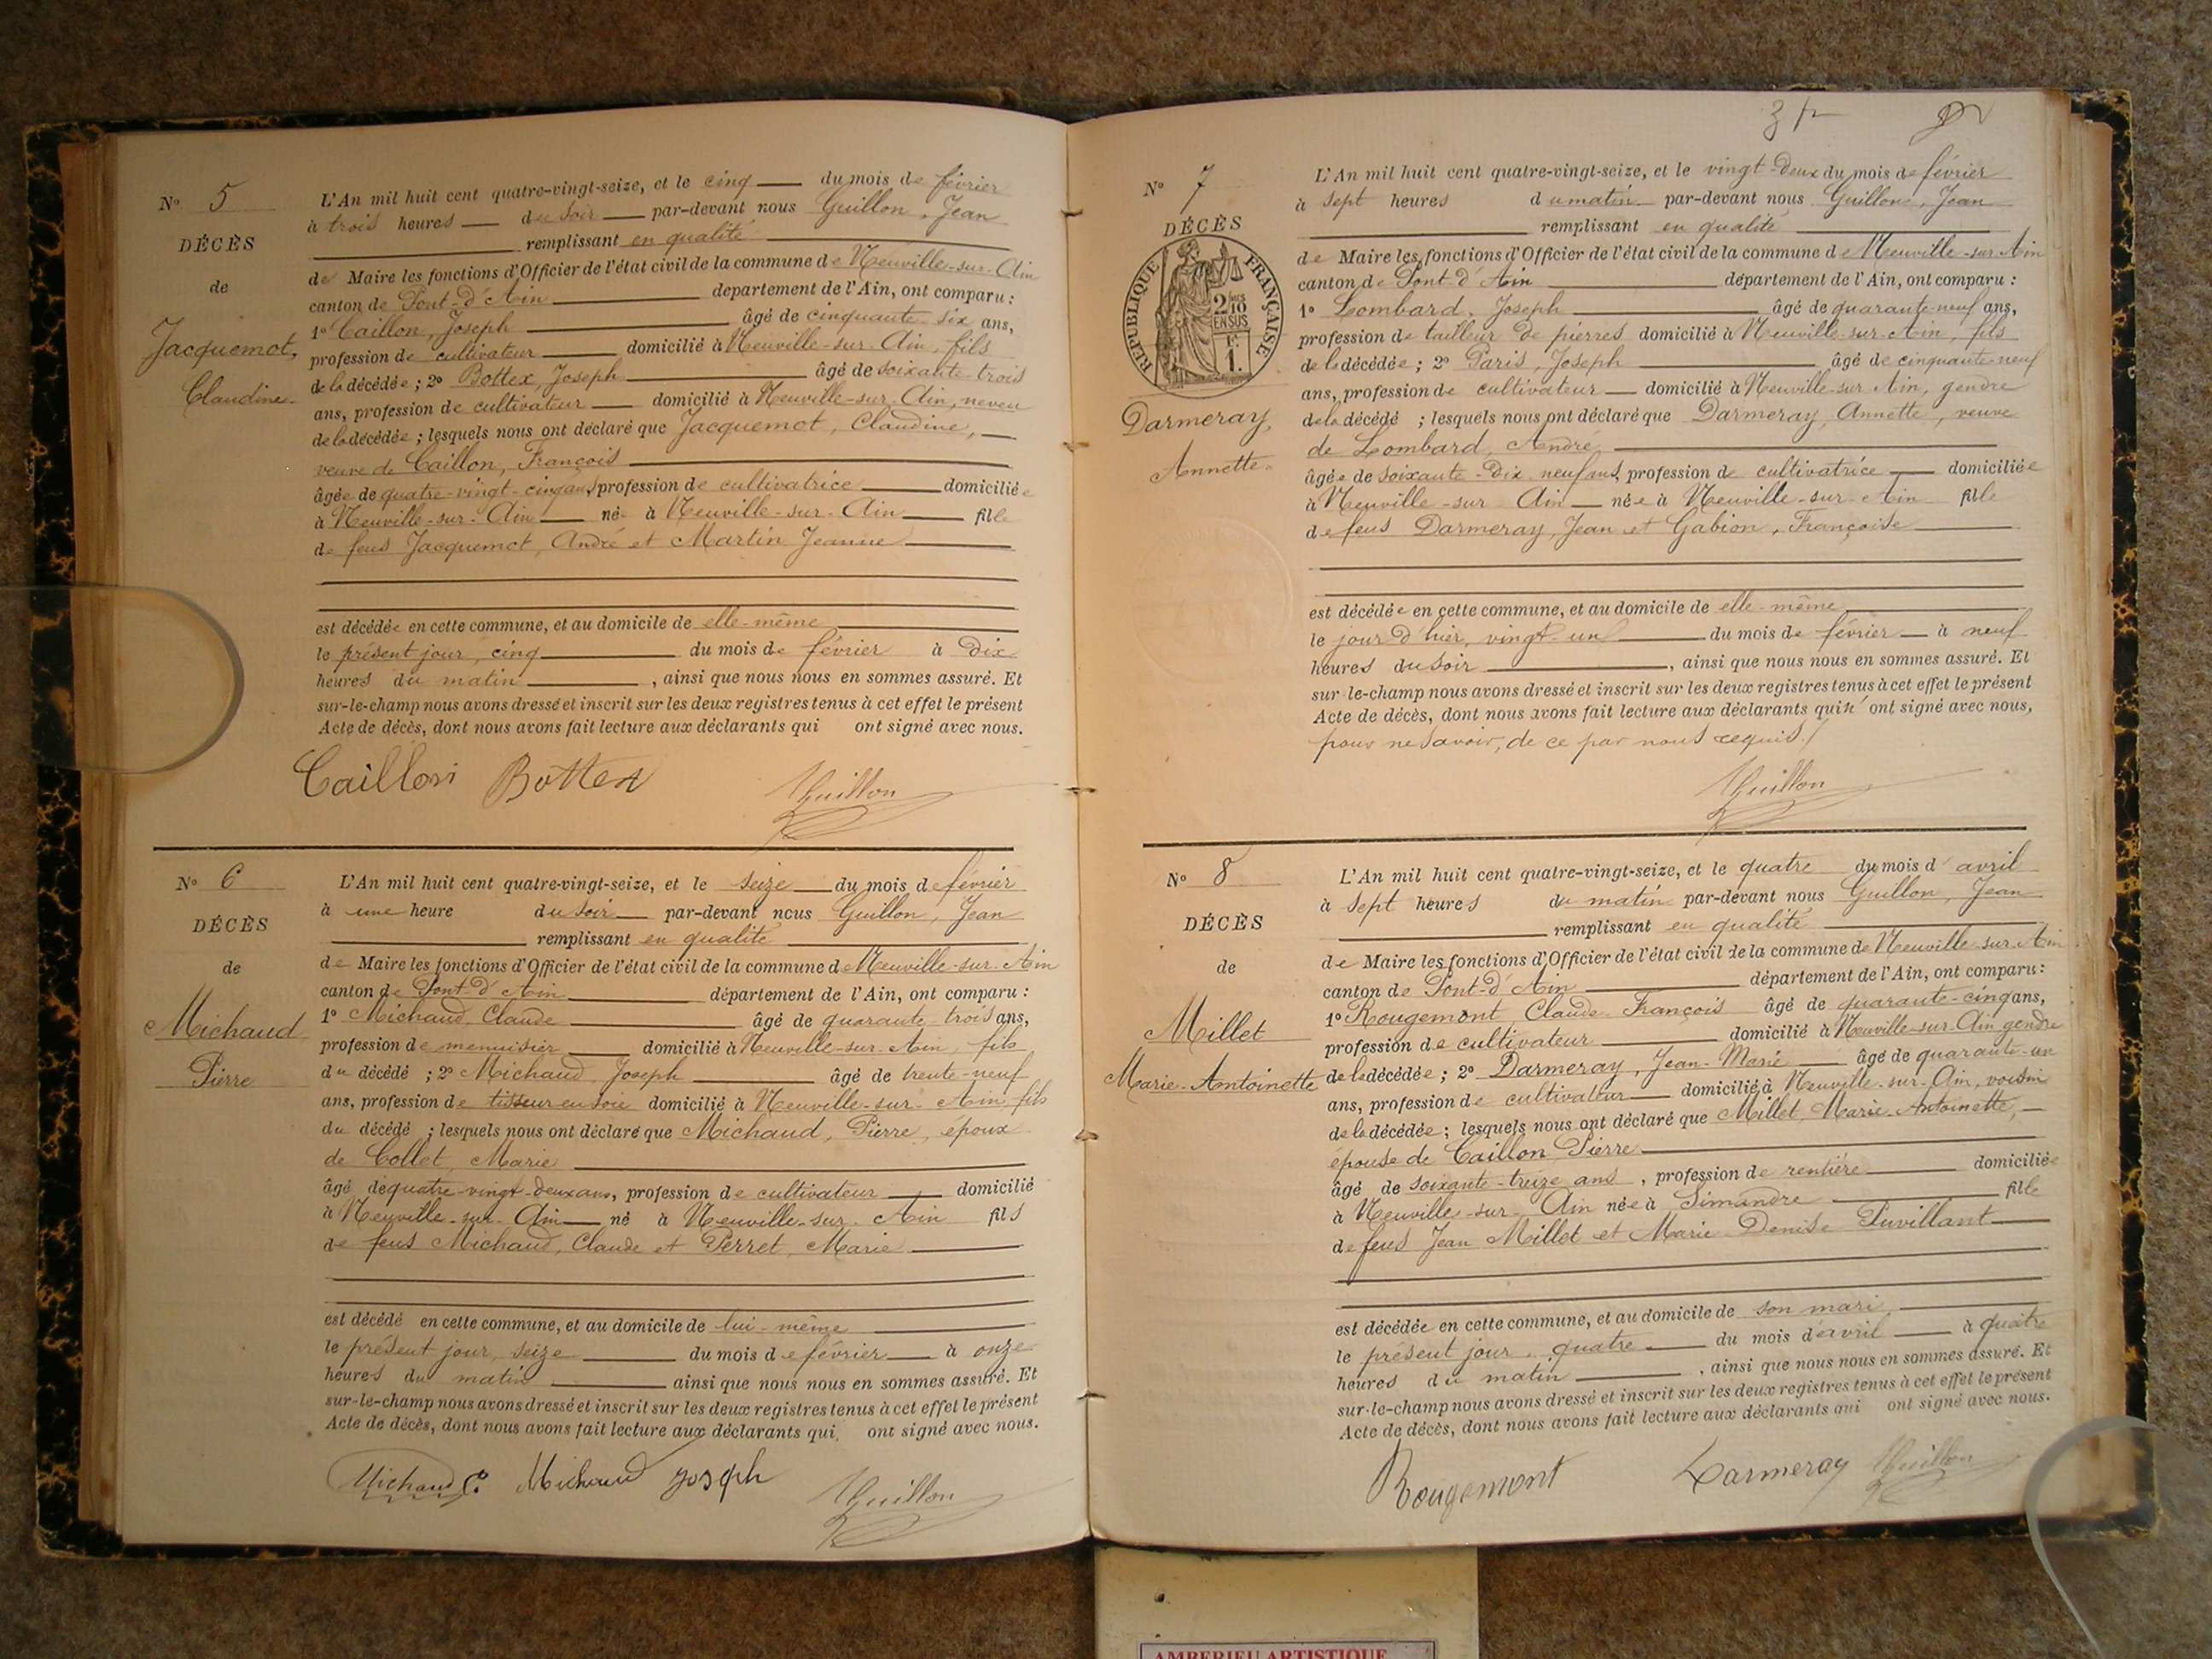 N° 5
DÉCÈS
de
Jacquemot,
Claudine.
L'An mil huit cent quatre-vingt-seize, et le cinq du mois de février
à trois heures du soir par-devant nous Guillon, Jean
remplissant en qualité
de Maire les fonctions d'Officier de l'état civil de la commune de Neuville-sur-Ain
canton de Pont-d'Ain département de l'Ain, ont comparu :
1° Caillon, Joseph âgé de cinquante-six ans,
profession de cultivateur domicilié à Neuville-sur-Ain, fils
de la décédée ; 2° Bottex, Joseph âgé de soixante-trois
ans, profession de cultivateur domicilié à Neuville-sur-Ain, neveu
de la décédée ; lesquels nous ont déclaré que Jacquemot, Claudine,
veuve de Caillon, François
âgée de quatre-vingt-cinq ans, profession de cultivatrice domiciliée
à Neuville-sur-Ain née à Neuville-sur-Ain fille
de feus Jacquemot, André et Martin Jeanne
est décédée en cette commune, et au domicile de elle-même
le présent jour, cinq du mois de février à dix
heures du matin , ainsi que nous nous en sommes assuré. Et
sur-le-champ nous avons dressé et inscrit sur les deux registres tenus à cet effet le présent
Acte de décès, dont nous avons fait lecture aux déclarants qui ont signé avec nous.
Caillon Bottex Guillon
N° 6
DÉCÈS
de
Michaud
Pierre
L'An mil huit cent quatre-vingt-seize, et le seize du mois de février
à une heure du soir par-devant nous Guillon, Jean
remplissant en qualité
de Maire les fonctions d'Officier de l'état civil de la commune de Neuville-sur-Ain
canton de Pont-d'Ain département de l'Ain, ont comparu :
1° Michaud, Claude âgé de quarante-trois ans,
profession de menuisier domicilié à Neuville-sur-Ain, fils
du décédé ; 2° Michaud, Joseph âgé de trente-neuf
ans, profession de tisseur en soie domicilié à Neuville-sur-Ain fils
du décédé ; lesquels nous ont déclaré que Michaud, Pierre, époux
de Collet, Marie
âgé de quatre-vingt-deux ans, profession de cultivateur domicilié
à Neuville-sur-Ain né à Neuville-sur-Ain fils
de feus Michaud, Claude et Perret, Marie
est décédé en cette commune, et au domicile de lui-même
le présent jour, seize du mois de février à onze
heures du matin ainsi que nous nous en sommes assuré. Et
sur-le-champ nous avons dressé et inscrit sur les deux registres tenus à cet effet le présent
Acte de décès, dont nous avons fait lecture aux déclarants qui ont signé avec nous.
Michaud C. Michaud Joseph Guillon
N° 7
DÉCÈS
RÉPUBLIQUE FRANÇAISE
2/10
EN SUS
1.
Darmeray,
Annette.
L'An mil huit cent quatre-vingt-seize, et le vingt-deux du mois de février
à sept heures du matin par-devant nous Guillon, Jean
remplissant en qualité
de Maire les fonctions d'Officier de l'état civil de la commune de Neuville-sur-Ain
canton de Pont-d'Ain département de l'Ain, ont comparu :
1° Lombard, Joseph âgé de quarante-neuf ans,
profession de tailleur de pierres domicilié à Neuville-sur-Ain, fils
de la décédée ; 2° Paris, Joseph âgé de cinquante-neuf
ans, profession de cultivateur domicilié à Neuville-sur-Ain, gendre
de la décédé ; lesquels nous ont déclaré que Darmeray, Annette, veuve
de Lombard, André
âgée de soixante-dix neuf ans, profession de cultivatrice domiciliée
à Neuville-sur-Ain née à Neuville-sur-Ain fille
de feus Darmeray, Jean et Gabion, Françoise
est décédée en cette commune, et au domicile de elle-même
le jour d'hier, vingt-un du mois de février à neuf
heures du soir , ainsi que nous nous en sommes assuré. Et
sur-le-champ nous avons dressé et inscrit sur les deux registres tenus à cet effet le présent
Acte de décès, dont nous avons fait lecture aux déclarants qui n'ont signé avec nous,
pour ne savoir, de ce par nous requis.
Guillon
N° 8
DÉCÈS
de
Millet
Marie-Antoinette
L'An mil huit cent quatre-vingt-seize, et le quatre du mois d'avril
à sept heures du matin par-devant nous Guillon, Jean
remplissant en qualité
de Maire les fonctions d'Officier de l'état civil de la commune de Neuville-sur-Ain
canton de Pont-d'Ain département de l'Ain, ont comparu :
1° Rougemont, Claude-François âgé de quarante-cinq ans,
profession de cultivateur domicilié à Neuville-sur-Ain gendre
de la décédée ; 2° Darmeray, Jean-Marie âgé de quarante-un
ans, profession de cultivateur domicilié à Neuville-sur-Ain, voisin
de la décédée ; lesquels nous ont déclaré que Millet, Marie-Antoinette,
épouse de Caillon Pierre
âgé de soixante-treize ans, profession de rentière domiciliée
à Neuville-sur-Ain née à Simandre fille
de feus Jean Millet et Marie Denise Puvillant
est décédée en cette commune, et au domicile de son mari,
le présent jour, quatre du mois d'avril à quatre
heures du matin , ainsi que nous nous en sommes assuré. Et
sur-le-champ nous avons dressé et inscrit sur les deux registres tenus à cet effet le présent
Acte de décès, dont nous avons fait lecture aux déclarants qui ont signé avec nous.
Rougemont Darmeray Guillon
AMBERIEU ARTISTIQUE